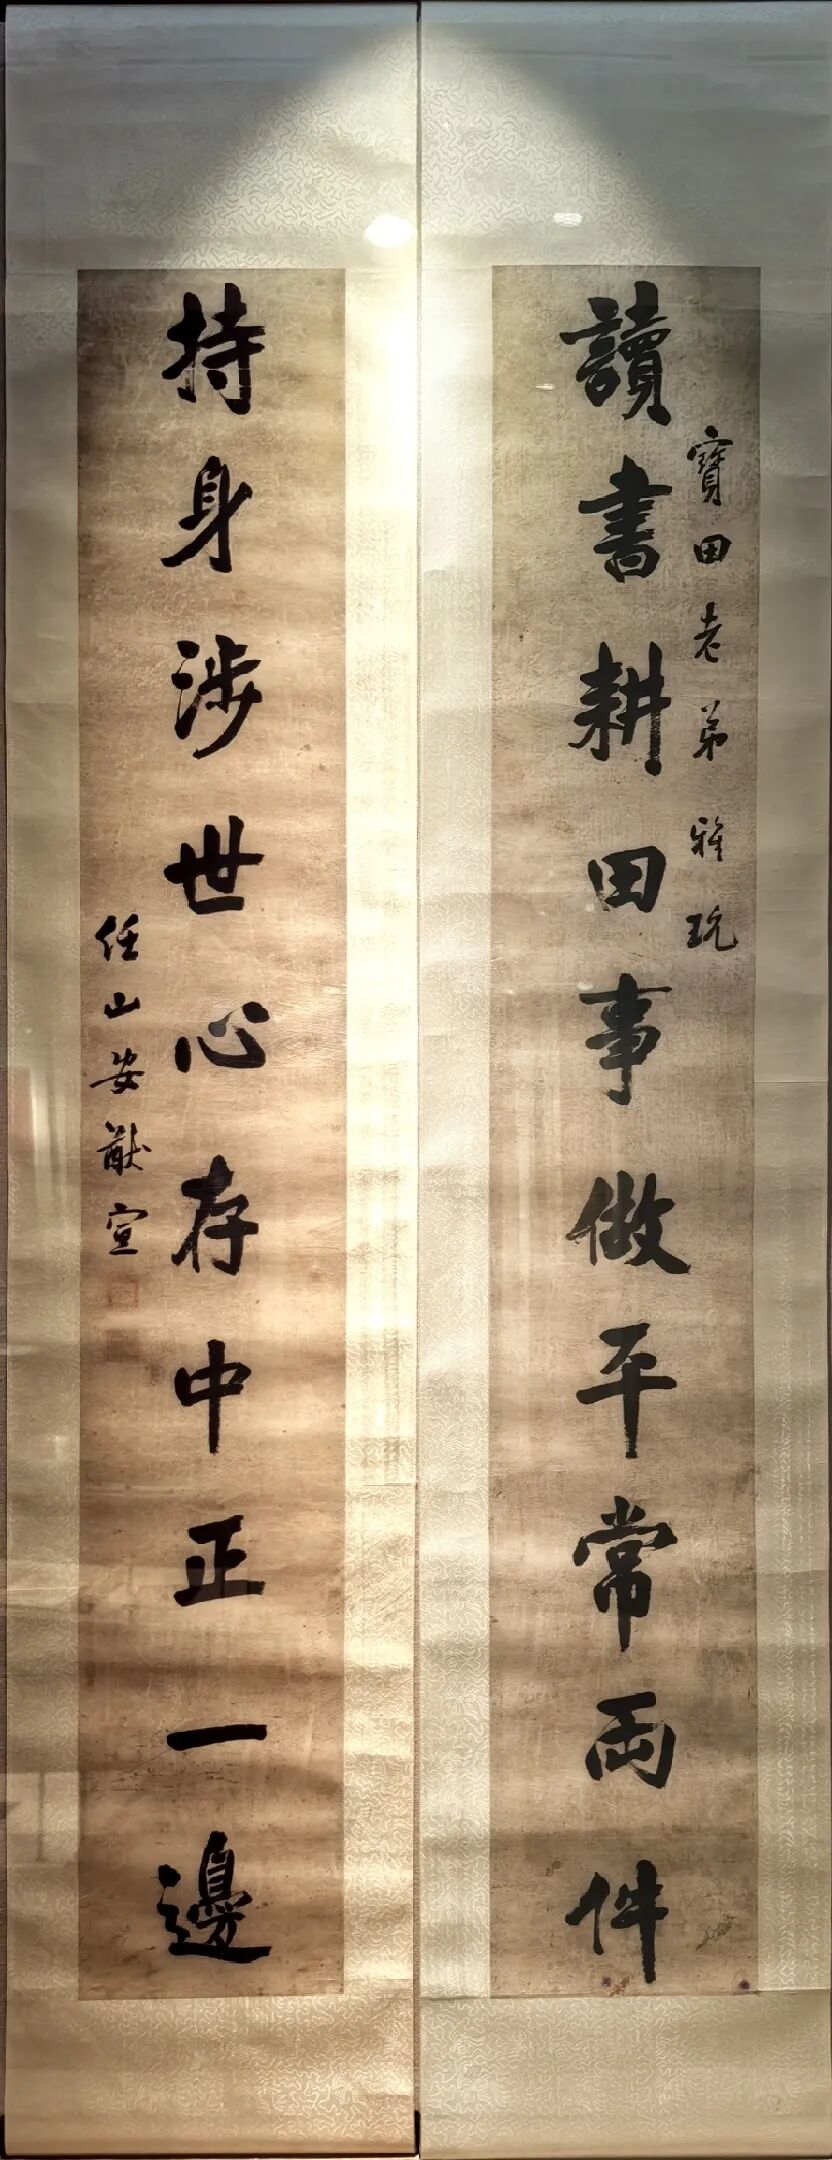 寶田老弟雅玩
讀書耕田事做平常兩件
持身涉世心存中正一邊
任山安猷宣